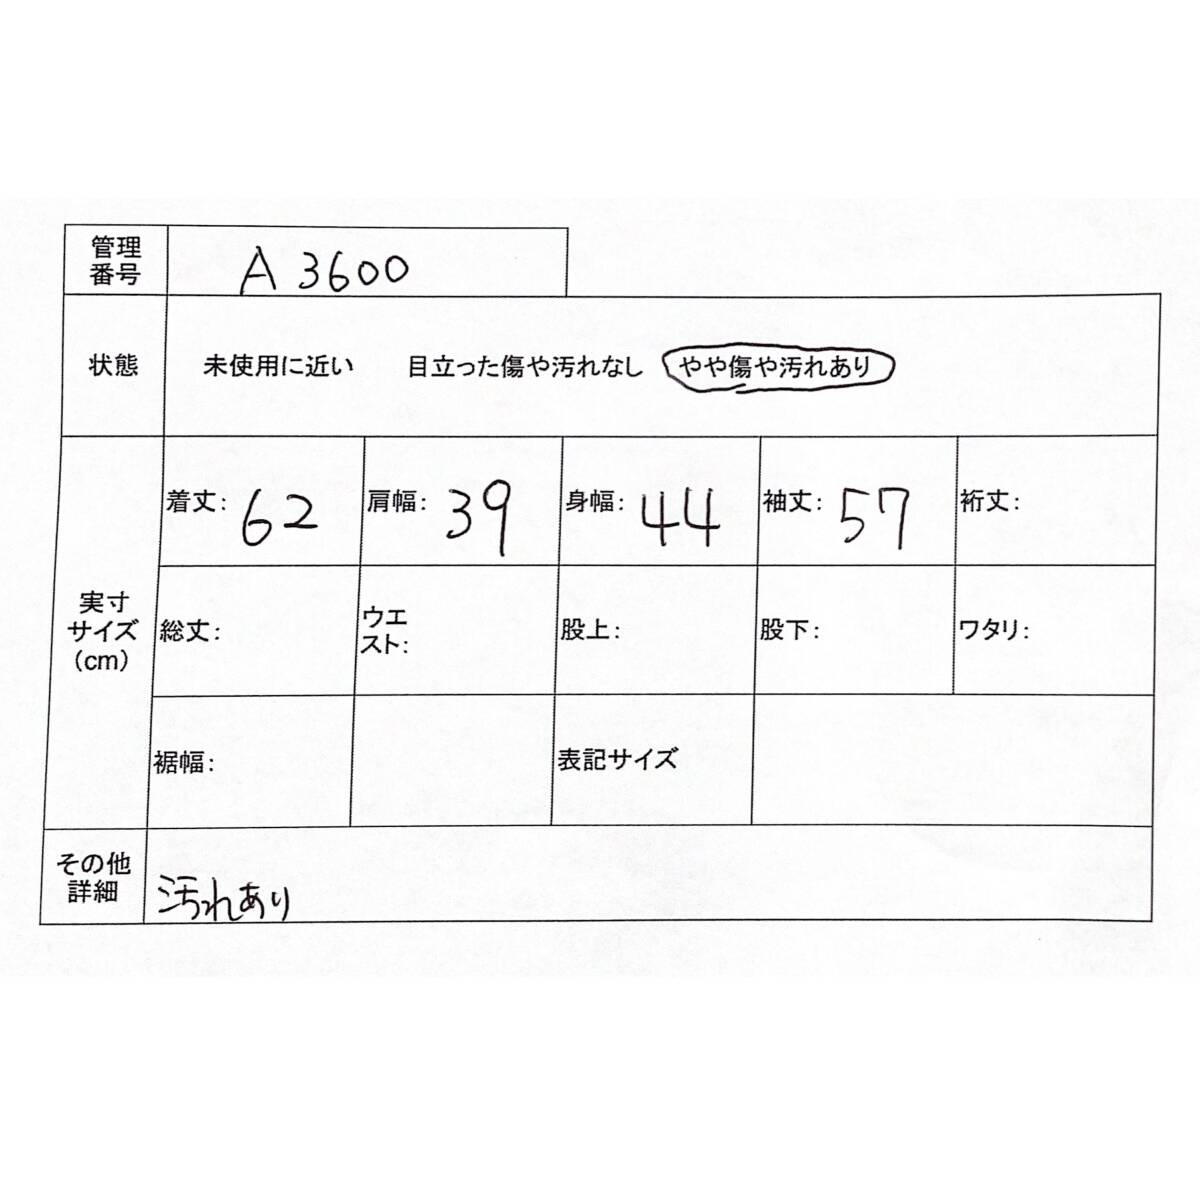 管理
番号
A 3600
状態
未使用に近い 目立った傷や汚れなし やや傷や汚れあり
実寸
サイズ
(cm)
着丈: 62 肩幅: 39 身幅: 44 袖丈: 57 裄丈:
総丈: ウエ
スト: 股上: 股下: ワタリ:
裾幅: 表記サイズ
その他
詳細
汚れあり